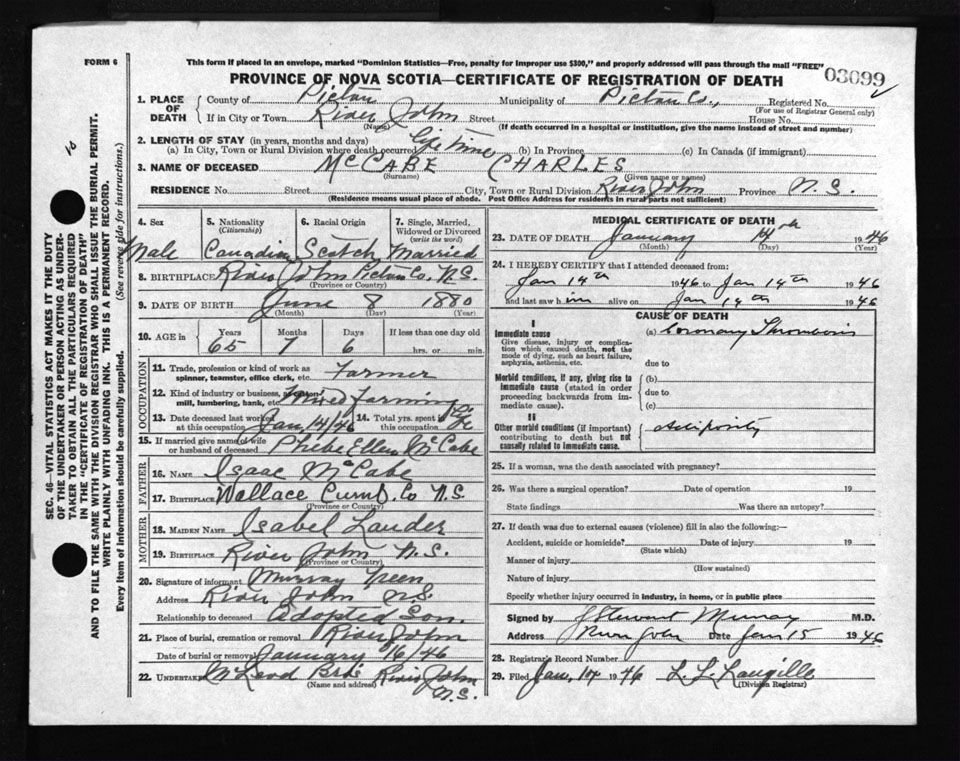 FORM 6
This form if placed in an envelope, marked "Dominion Statistics—Free, penalty for improper use $300," and properly addressed will pass through the mail "FREE"
PROVINCE OF NOVA SCOTIA—CERTIFICATE OF REGISTRATION OF DEATH
03099
1. PLACE OF DEATH
County of Pictou Municipality of Pictou Co., Registered No.
(For use of Registrar General only)
If in City or Town River John Street House No.
(Name) (If death occurred in a hospital or institution, give the name instead of street and number)
2. LENGTH OF STAY (in years, months and days)
(a) In City, Town or Rural Division where death occurred Life time (b) In Province (c) In Canada (if immigrant)
3. NAME OF DECEASED McCABE CHARLES
(Surname) (Given name or names)
RESIDENCE No. Street City, Town or Rural Division River John Province N.S.
(Residence means usual place of abode. Post Office Address for residents in rural parts not sufficient)
4. Sex 5. Nationality 6. Racial Origin 7. Single, Married,
(Citizenship) Widowed or Divorced
(write the word)
Male Canadian Scotch Married
8. BIRTHPLACE River John Pictou Co. N.S.
(Province or Country)
9. DATE OF BIRTH June 8 1880
(Month) (Day) (Year)
10. AGE in Years Months Days If less than one day old
65 7 6 hrs. or min.
OCCUPATION
11. Trade, profession or kind of work as
spinner, teamster, office clerk, etc. Farmer
12. Kind of industry or business, as
mill, lumbering, bank, etc. Mixed Farming
13. Date deceased last worked 14. Total yrs. spent in
at this occupation Jan, 14/46 this occupation Life
15. If married give name of wife
or husband of deceased Phebe Ellen McCabe
FATHER
16. NAME Isaac McCabe
17. BIRTHPLACE Wallace Cumb. Co N.S.
(Province or Country)
MOTHER
18. MAIDEN NAME Isabel Lauder
19. BIRTHPLACE River John N.S.
(Province or Country)
20. Signature of informant Murray
Address River John NS
Relationship to deceased Adopted Son.
21. Place of burial, cremation or removal River John
Date of burial or removal January 16/46
22. UNDERTAKER McLeod Bros River John
(Name and address) N.S.
MEDICAL CERTIFICATE OF DEATH
23. DATE OF DEATH January 14th 1946
(Month) (Day) (Year)
24. I HEREBY CERTIFY that I attended deceased from:
Jan 14th 1946 to Jan 14th 1946
and last saw him alive on Jan 14th 1946
CAUSE OF DEATH
I
Immediate cause (a) Coronary Thrombosis
Give disease, injury or complica-
tion which caused death, not the
mode of dying, such as heart failure,
asphyxia, asthenia, etc.
due to
Morbid conditions, if any, giving rise to
immediate cause (stated in order
proceeding backwards from im-
mediate cause).
(b)
due to
(c)
II
Other morbid conditions (if important)
contributing to death but not
causally related to immediate cause.
Adiposity
25. If a woman, was the death associated with pregnancy?
26. Was there a surgical operation? Date of operation 19
State findings Was there an autopsy?
27. If death was due to external causes (violence) fill in also the following:—
Accident, suicide or homicide? Date of injury 19
(State which)
Manner of injury
(How sustained)
Nature of injury
Specify whether injury occurred in industry, in home, or in public place
Signed by J Stewart Murray M.D.
Address River John Date Jan 15 1946
28. Registrar's Record Number
29. Filed Jan, 14 1946 L. L. Langille
(Division Registrar)
SEC. 46—VITAL STATISTICS ACT MAKES IT THE DUTY
OF THE UNDERTAKER OR PERSON ACTING AS UNDER-
TAKER TO OBTAIN ALL THE PARTICULARS REQUIRED
IN THE "CERTIFICATE OF REGISTRATION OF DEATH"
AND TO FILE THE SAME WITH THE DIVISION REGISTRAR WHO SHALL ISSUE THE BURIAL PERMIT.
WRITE PLAINLY WITH UNFADING INK. THIS IS A PERMANENT RECORD.
Every item of information should be carefully supplied. (See reverse side for instructions.)